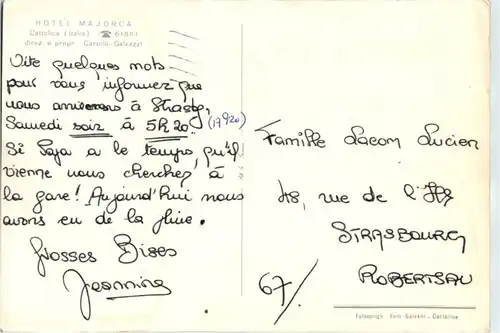 HOTEL MAJORCA
Cattolica (Italia) ☎ 61881
direz. e propr. Carullo-Galeazzi
Vite quelques mots
pour vous informez que
nous arriverons à Strasbg,
Samedi soir à 5h20. (17h20)
Si Papa a le temps, qu'il
vienne nous cherchez à
la gare! Aujourd'hui nous
avons eu de la pluie.
Grosses Bises
Jeannine
Famille Lacom Lucien
48, rue de l'Ill
STRASBOURG
ROBERTSAU
67/
Fotograph. Foto Galvani - Cattolica